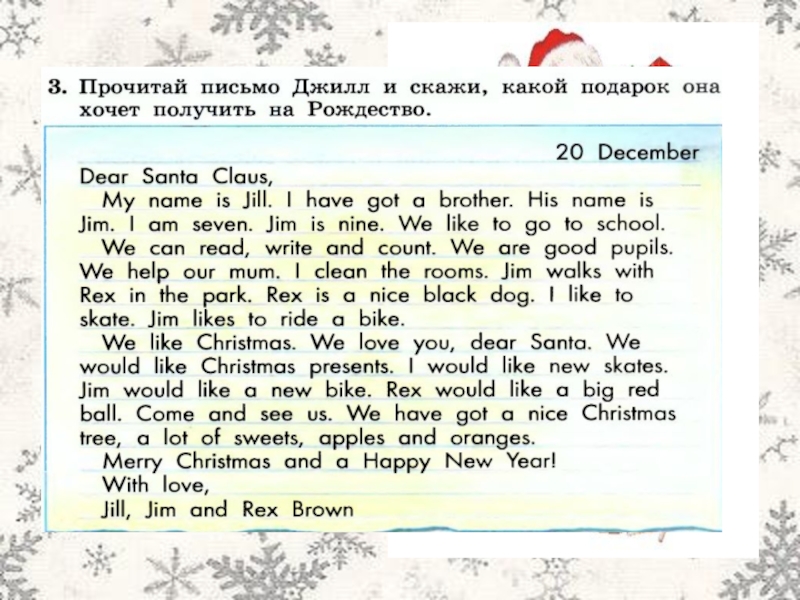 3. Прочитай письмо Джилл и скажи, какой подарок она
хочет получить на Рождество.
20 December
Dear Santa Claus,
My name is Jill. I have got a brother. His name is
Jim. I am seven. Jim is nine. We like to go to school.
We can read, write and count. We are good pupils.
We help our mum. I clean the rooms. Jim walks with
Rex in the park. Rex is a nice black dog. I like to
skate. Jim likes to ride a bike.
We like Christmas. We love you, dear Santa. We
would like Christmas presents. I would like new skates.
Jim would like a new bike. Rex would like a big red
ball. Come and see us. We have got a nice Christmas
tree, a lot of sweets, apples and oranges.
Merry Christmas and a Happy New Year!
With love,
Jill, Jim and Rex Brown